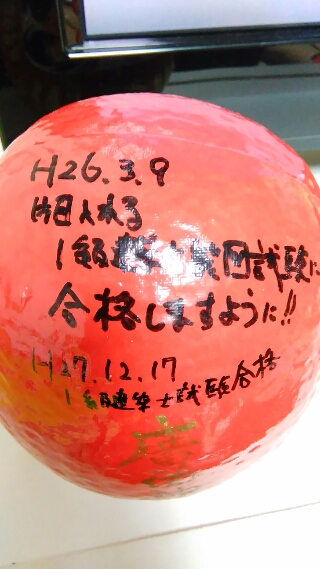 H26.3.9
片目入れる
1級建築士製図試験に
合格しますように!!
H27.12.17
1級建築士試験合格